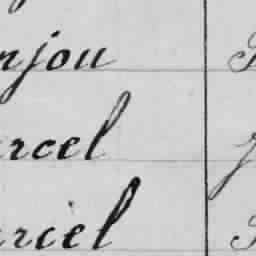 njou
rcel
riel